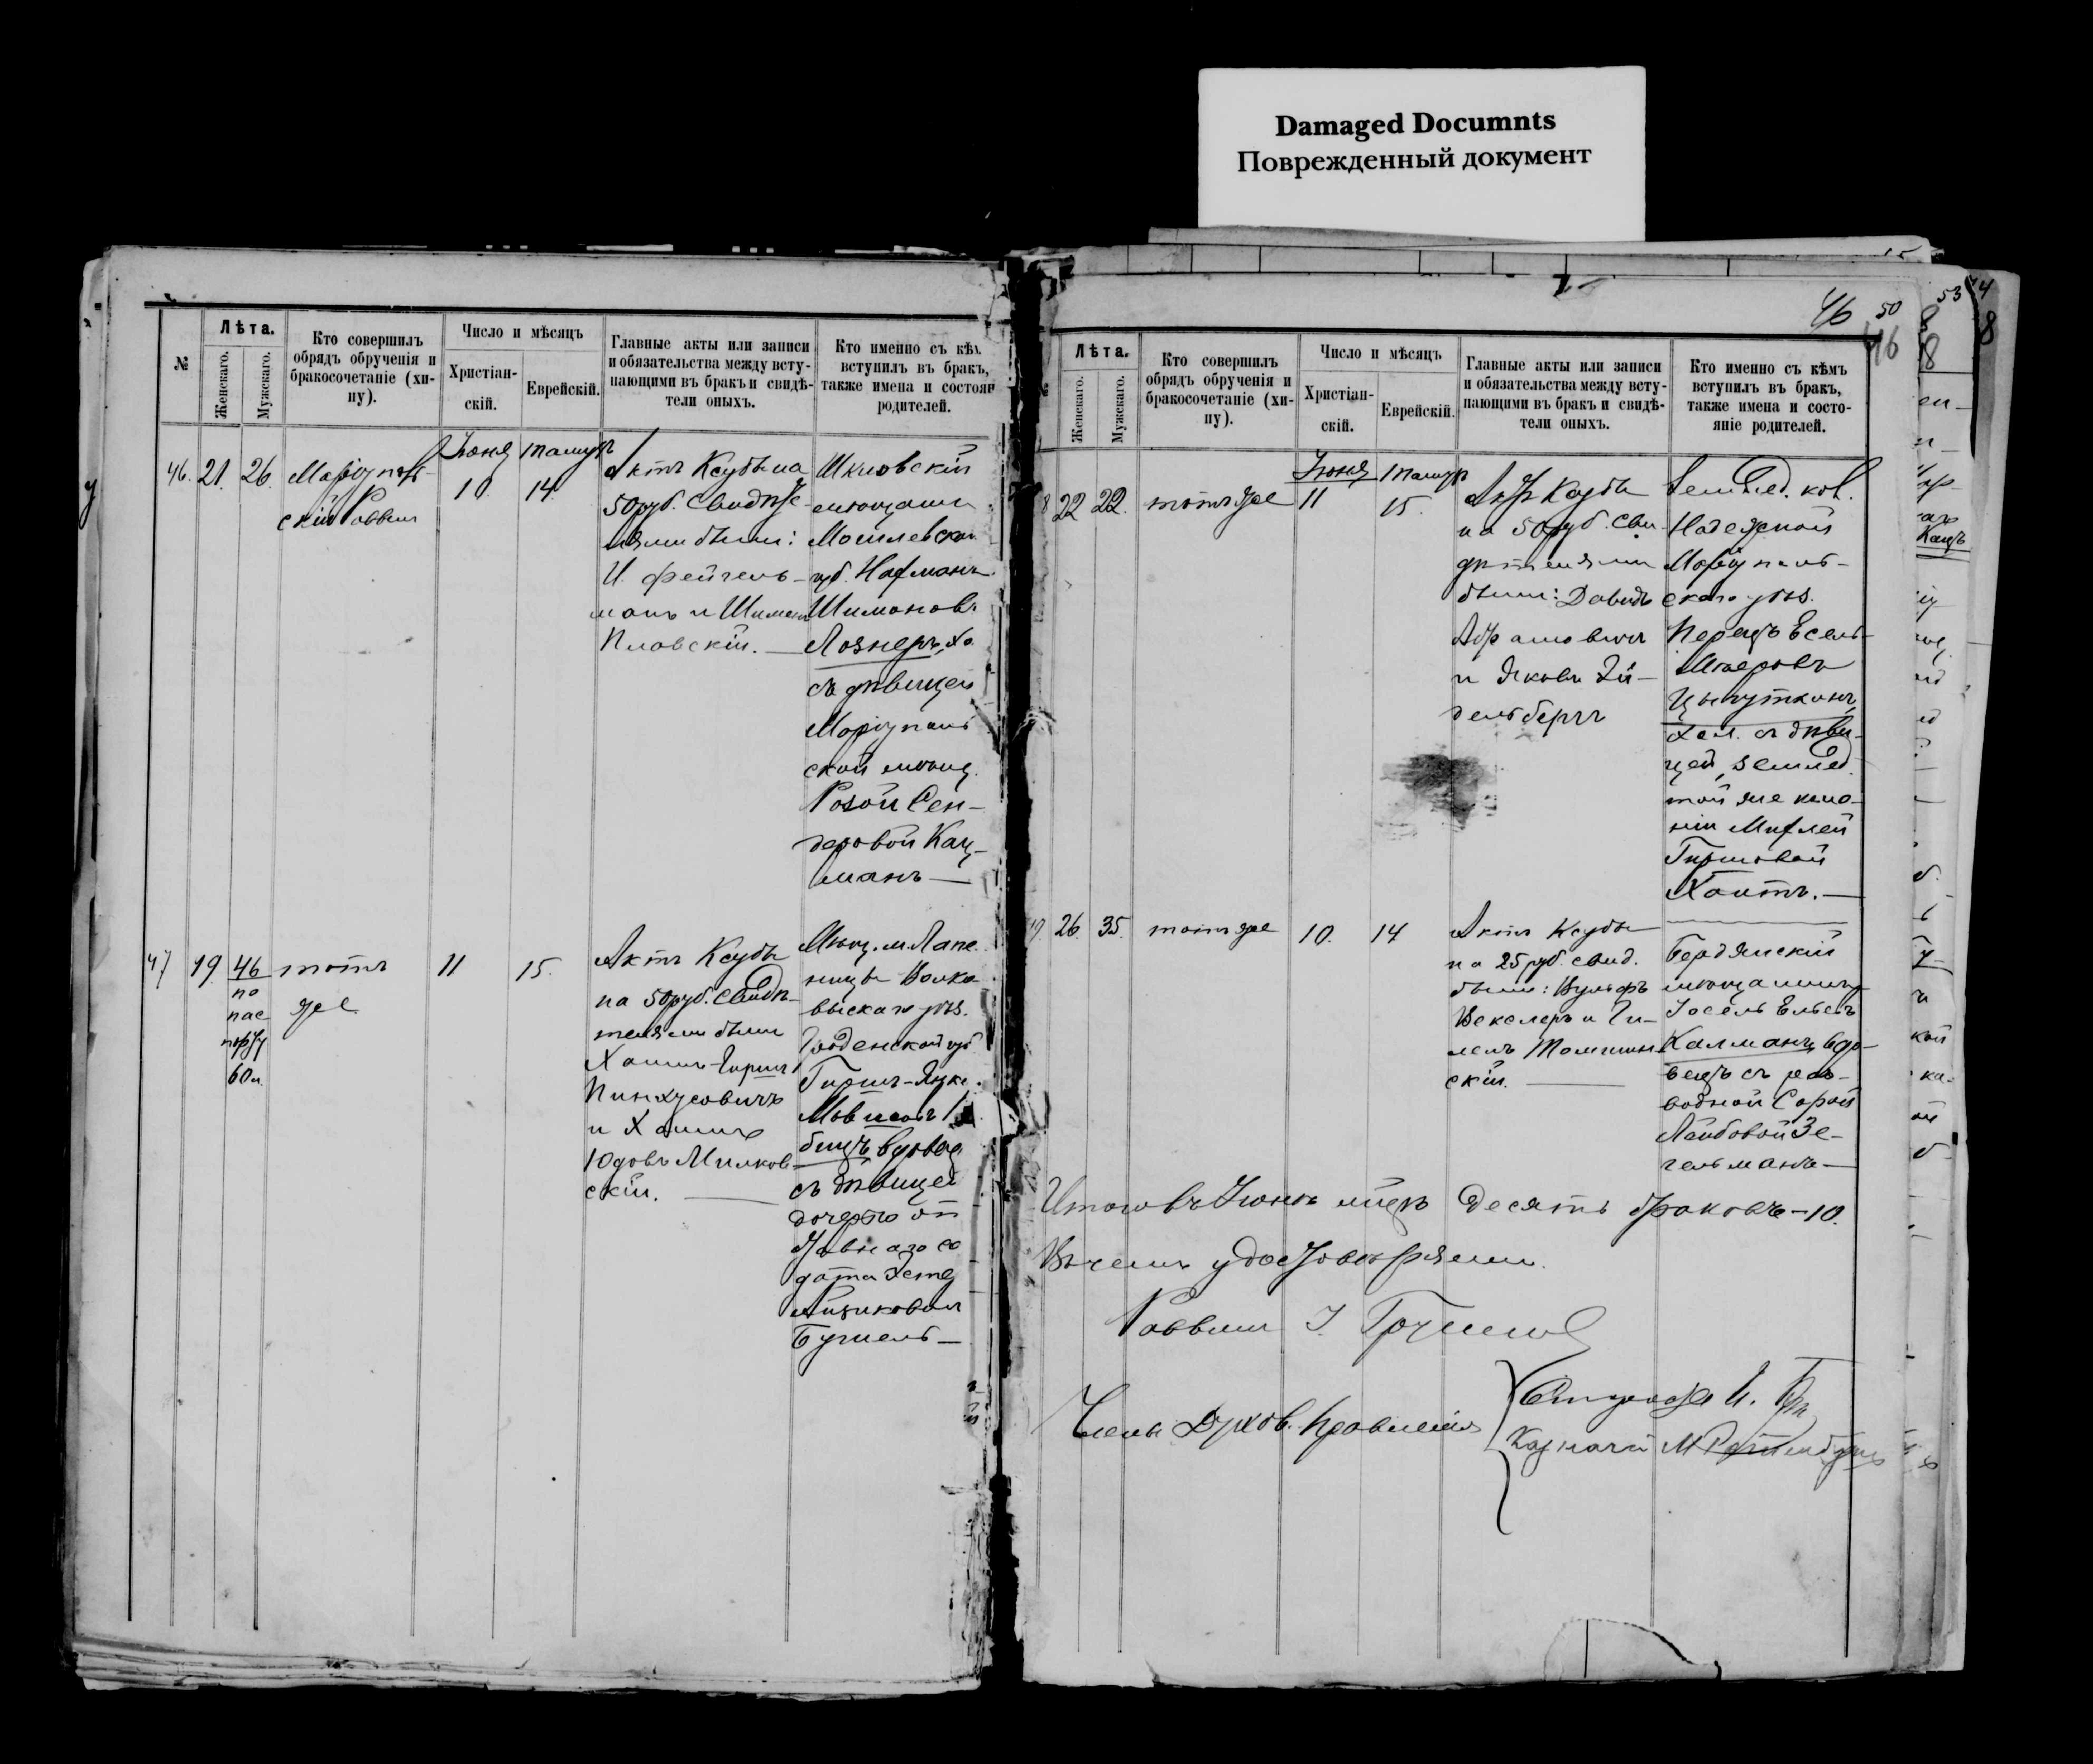 Damaged Documnts
Поврежденный документ
№
Лѣта.
Женскаго.
Мужскаго.
Кто совершилъ
обрядъ обрученія и
бракосочетаніе (хи-
пу).
Число и мѣсяцъ
Христіан-
скій.
Еврейскій.
Главные акты или записи
и обязательства между всту-
пающими въ бракъ и свидѣ-
тели оныхъ.
Кто именно съ кѣм
вступилъ въ бракъ,
также имена и состоян
родителей.
46. 21. 26.
Маріуполь-
скій Раввин
Іюня
10.
Тамуз
14.
Актъ Ксубы на
50 руб. Свидѣте-
лями были:
И. Фейгель-
манъ и Шимон
Иловскій.
Шкловскій
мѣщанин
Могилевской
губ. Нахманъ
Шимоновъ
Лознеръ, хо.
съ дѣвицей
Маріуполь
ской мѣщ.
Розой Сен-
деровой Кац-
манъ
47 19. 46
по
пас
порту
60 л.
тотъ
же
11
15.
Актъ Ксубы
на 50 руб. Свидѣ-
телями были
Хаимъ-Гирш
Пинхусовичъ
и Хаимъ
Юдовъ Милков
скій.
Мѣщ. м. Лапе
ницы Волко
выскаго уѣз.
Гродненской губ
Гирш-Янке
вдовец
съ дѣвицей
дочерью от
ставнаго со
дата
Бугнель
46 50 53
46
Лѣта.
Женскаго.
Мужскаго.
Кто совершилъ
обрядъ обрученія и
бракосочетаніе (хи-
пу).
Число и мѣсяцъ
Христіан-
скій.
Еврейскій.
Главные акты или записи
и обязательства между всту-
пающими въ бракъ и свидѣ-
тели оныхъ.
Кто именно съ кѣмъ
вступилъ въ бракъ,
также имена и состо-
яніе родителей.
8 22 22.
тотъ же
Іюня
11
Тамуз
15.
Актъ Ксубы
на 50 руб. Сви-
дѣтелями
были: Давидъ
Абрамович
и Яковъ Эй-
дельбергъ
Землед. кол.
Надежной
Маріуполь-
скаго уѣз.
Перецъ Есель-
Мееровъ
Цыпуткинъ,
хол. съ дѣви-
цей, землед.
той же коло-
ніи Михлей
Гиршовой
Хаитъ.
9. 26. 35.
тотъ же
10.
14
Актъ Ксубы
на 25 руб. Свид.
были: Вульфъ
Векслеръ и Ги-
лель Томшин
скій.
Бердянскій
мѣщанинъ
Іосель Ельевъ
Калманъ, вдо-
вецъ съ раз-
водной Сарой
Лейбовой Зе-
гельманъ
Итого въ Іюнѣ м-цѣ десять браковъ - 10.
Въ чемъ удостовѣряемъ.
Раввинъ І.
Члены Духов. Правленія
Староста И.
Казначей М.